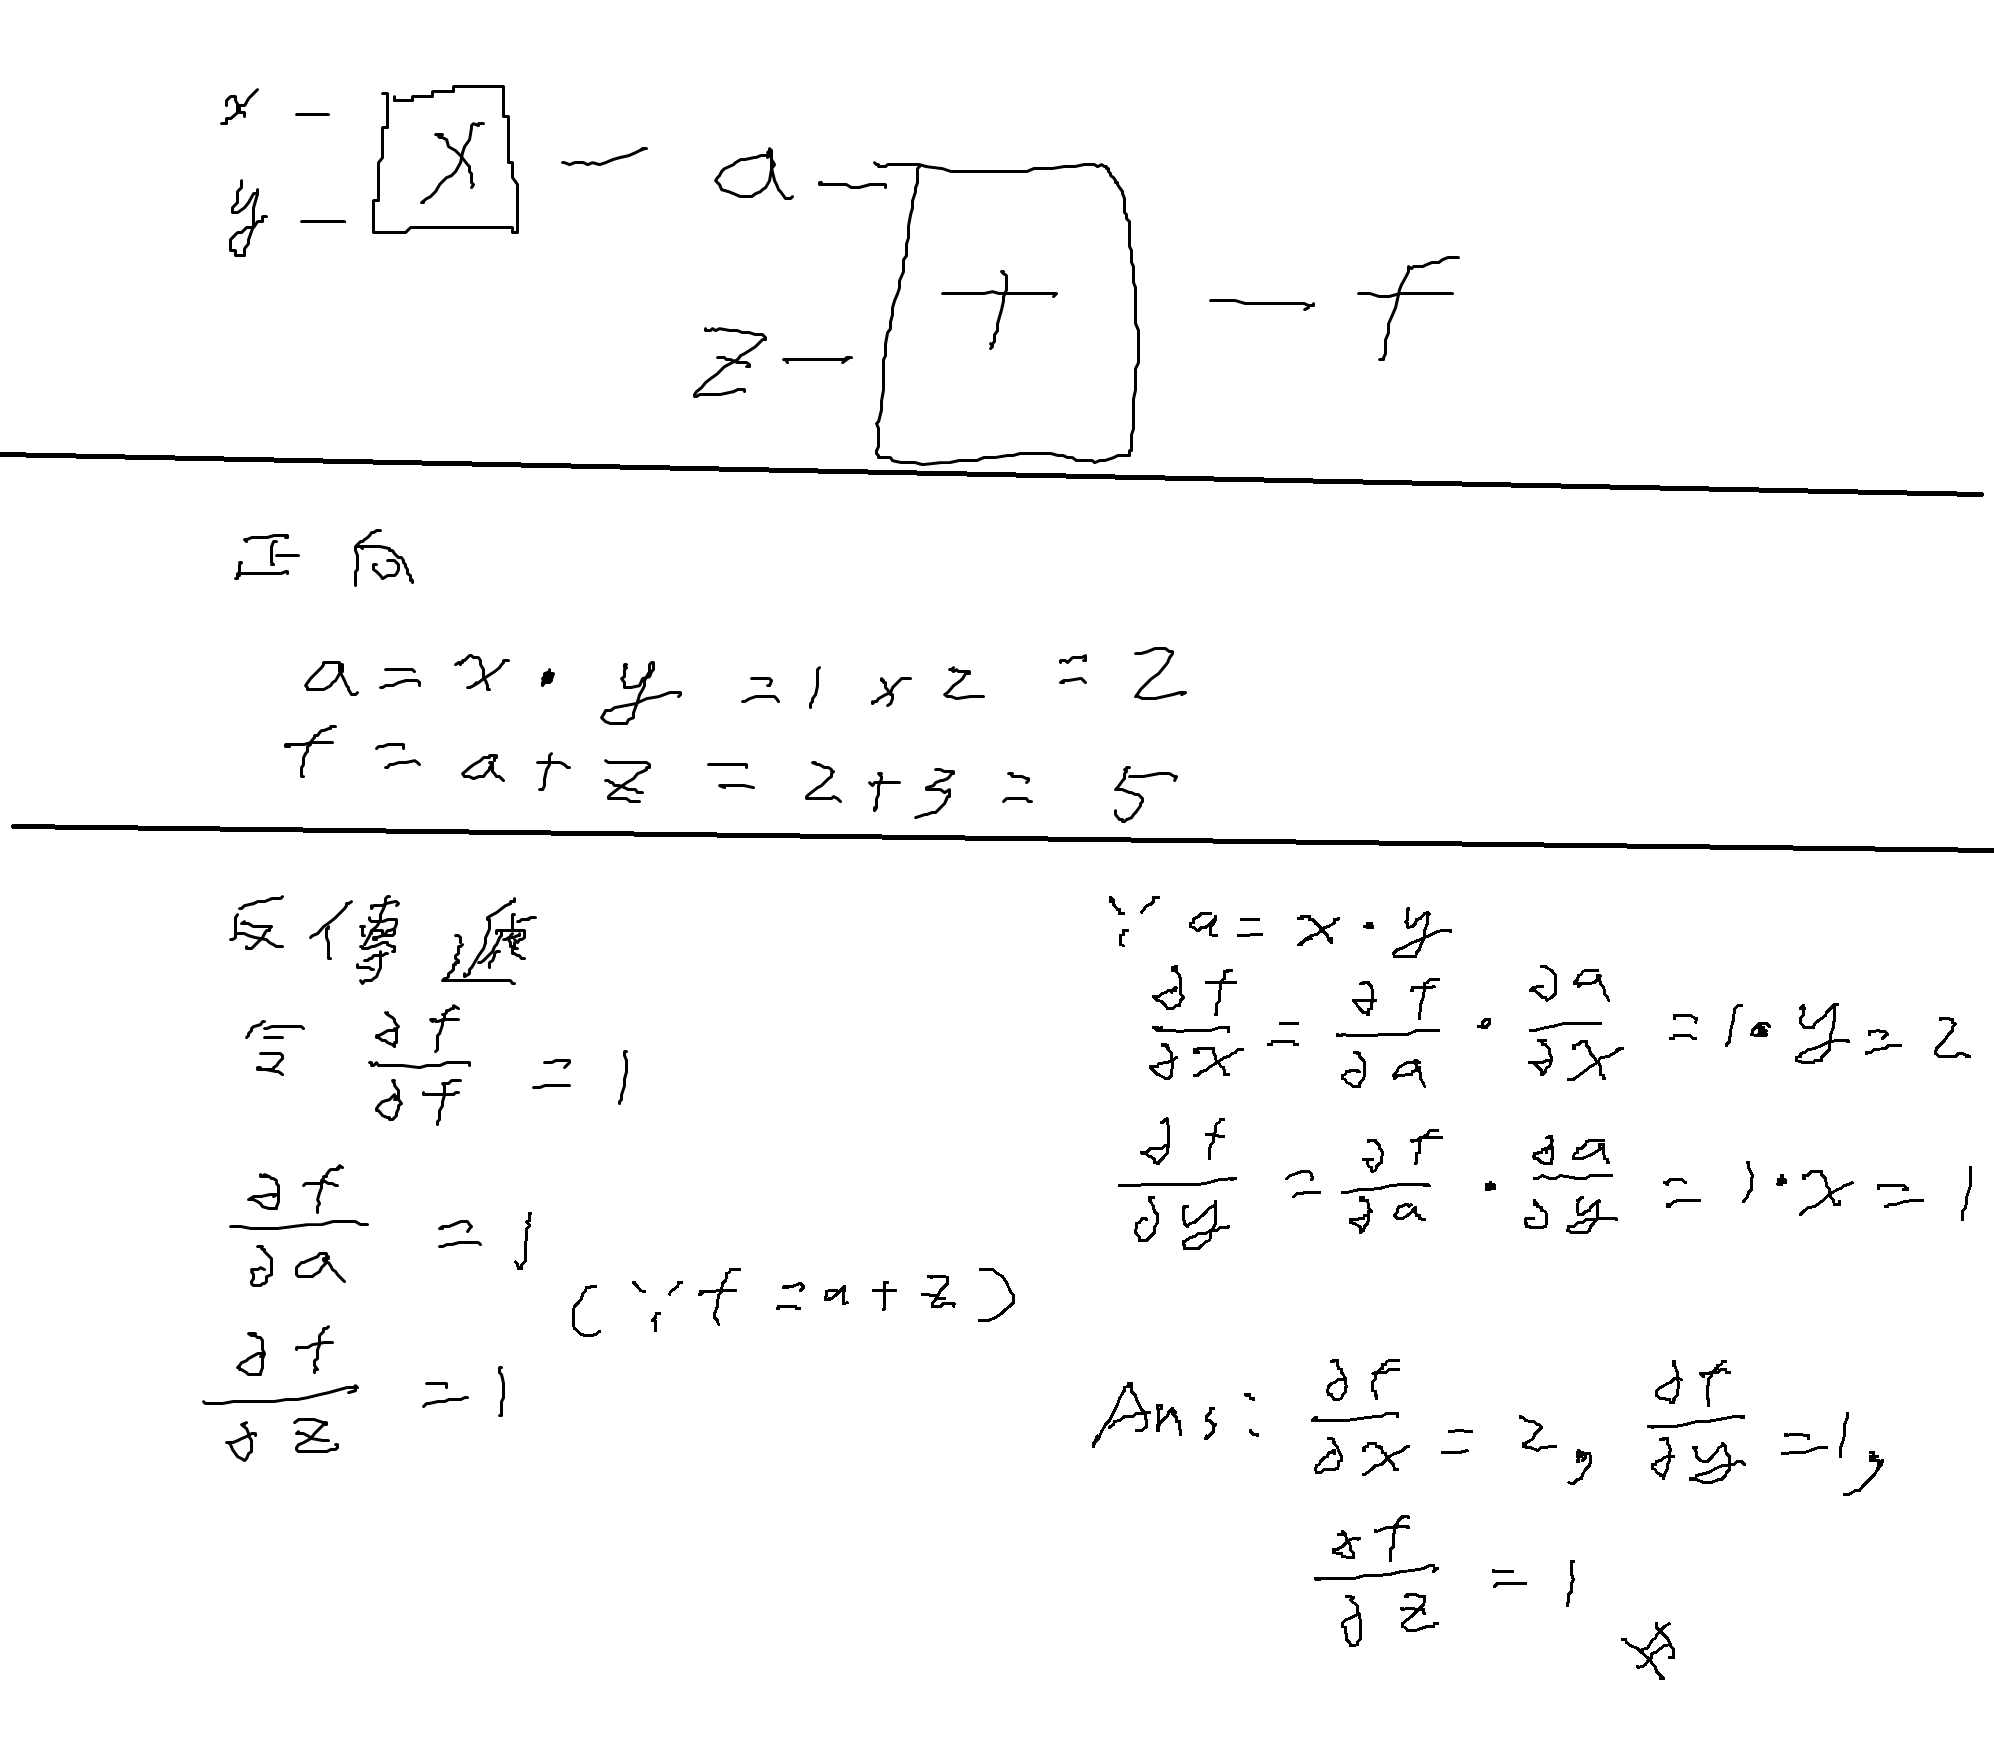 x —
y —
× — a —
z —
+ — f
正向
a = x · y = 1 × 2 = 2
f = a + z = 2 + 3 = 5
反傳遞
∂f/∂f = 1
∂f/∂a = 1
(∵ f = a + z)
∂f/∂z = 1
∵ a = x · y
∂f/∂x = ∂f/∂a · ∂a/∂x = 1 · y = 2
∂f/∂y = ∂f/∂a · ∂a/∂y = 1 · x = 1
Ans : ∂f/∂x = 2, ∂f/∂y = 1,
∂f/∂z = 1